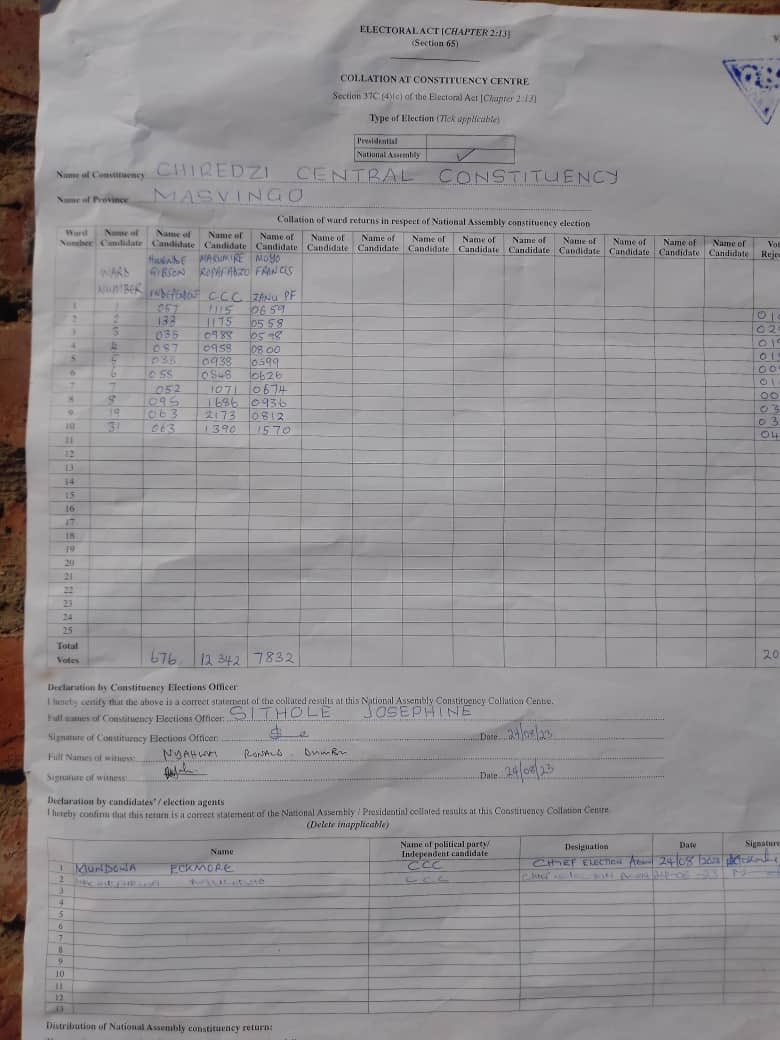 ELECTORAL ACT [CHAPTER 2:13]
(Section 65)
COLLATION AT CONSTITUENCY CENTRE
Section 37C (4)(c) of the Electoral Act [Chapter 2:13]
Type of Election (Tick applicable)
Presidential
National Assembly ✓
Name of Constituency CHIREDZI CENTRAL CONSTITUENCY
Name of Province MASVINGO
Collation of ward returns in respect of National Assembly constituency election
Ward Number Name of Candidate Name of Candidate Name of Candidate Name of Candidate Name of Candidate Name of Candidate Name of Candidate Name of Candidate Name of Candidate Name of Candidate Name of Candidate Name of Candidate Name of Candidate
WARD NUMBER GIBSON INDEPENDENT MAKUMIRE ROPAFADZO CCC MOYO FRANCIS ZANU PF
1 1 057 1115 0659
2 2 133 1175 0558
3 3 035 0988 0598
4 4 087 0958 0800
5 5 033 0938 0599
6 6 058 0848 0626
7 7 052 1071 0674
8 8 095 1686 0936
9 19 063 2173 0812
10 31 063 1390 1570
11
12
13
14
15
16
17
18
19
20
21
22
23
24
25
Total Votes 676 12 342 7832
Declaration by Constituency Elections Officer
I hereby certify that the above is a correct statement of the collated results at this National Assembly Constituency Collation Centre.
Full names of Constituency Elections Officer: SITHOLE JOSEPHINE
Signature of Constituency Elections Officer Date 24/08/23
Full Names of witness: RONALD
Signature of witness Date 24/08/23
Declaration by candidates' / election agents
I hereby confirm that this return is a correct statement of the National Assembly / Presidential collated results at this Constituency Collation Centre.
(Delete inapplicable)
Name Name of political party/ Independent candidate Designation Date Signature
1 MUNDOWA ECKMORE CCC CHIEF ELECTION AGENT 24/08/2023
2 CCC
3
4
5
6
7
8
9
10
11
12
13
Distribution of National Assembly constituency return: